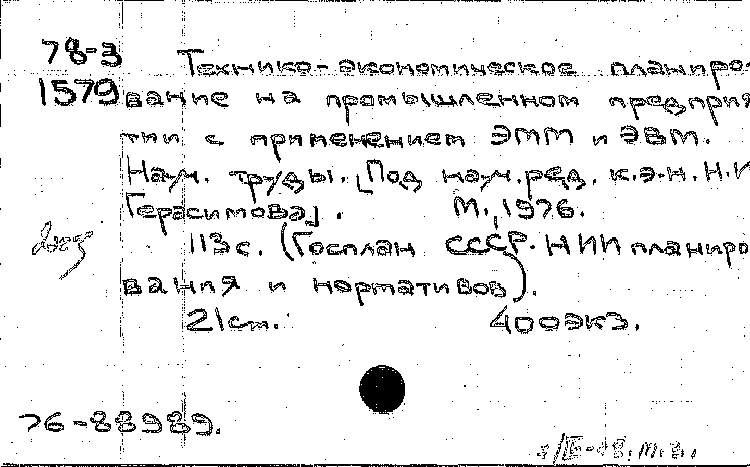 78-3
1579
Технико-экономическое планиро-
вание на промышленном предприя
тии с применением ЭММ и ЭВМ.
Науч. труды. [Под науч. ред. к.э.н. Н.И
Герасимова]. М., 1976.
113с. (Госплан СССР. НИИ планиро
вания и нормативов).
21см. 400экз.
76-88989.